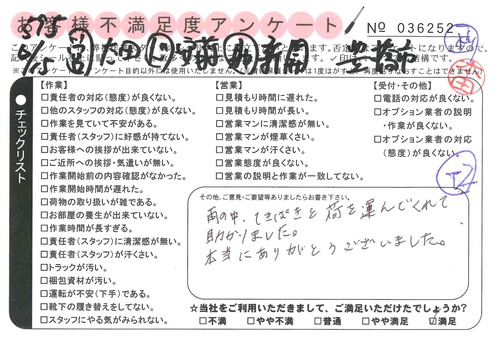 お客様不満足度アンケート
No 036252
【作業】
□責任者の対応(態度)が良くない。
□他のスタッフの対応(態度)が良くない。
□作業を見ていて不安がある。
□責任者(スタッフ)に好感が持てない。
□お客様への挨拶が出来ていない。
□ご近所への挨拶・気遣いが無い。
□作業開始前の内容確認がなかった。
□作業開始時間が遅れた。
□荷物の取り扱いが雑である。
□お部屋の養生が出来ていない。
□作業時間が長すぎる。
□責任者(スタッフ)に清潔感が無い。
□責任者(スタッフ)が汗くさい。
□トラックが汚い。
□梱包資材が汚い。
□運転が不安(下手)である。
□靴下の履き替えをしてない。
□スタッフにやる気がみられない。
【営業】
□見積もり時間に遅れた。
□見積もり時間が長い。
□営業マンに清潔感が無い。
□営業マンが煙草くさい。
□営業マンが汗くさい。
□営業態度が良くない。
□営業の説明と作業が一致してない。
【受付・その他】
□電話の対応が良くない。
□オプション業者の説明
・作業が良くない。
□オプション業者の対応
(態度)が良くない。
チェックリスト
その他、ご意見・ご要望等ありましたらお書き下さい。
雨の中、てきぱきと荷を運んでくれて
助かりました。
本当にありがとうございました。
☆当社をご利用いただきまして、ご満足いただけたでしょうか?
□不満 □やや不満 □普通 □やや満足 ☑満足